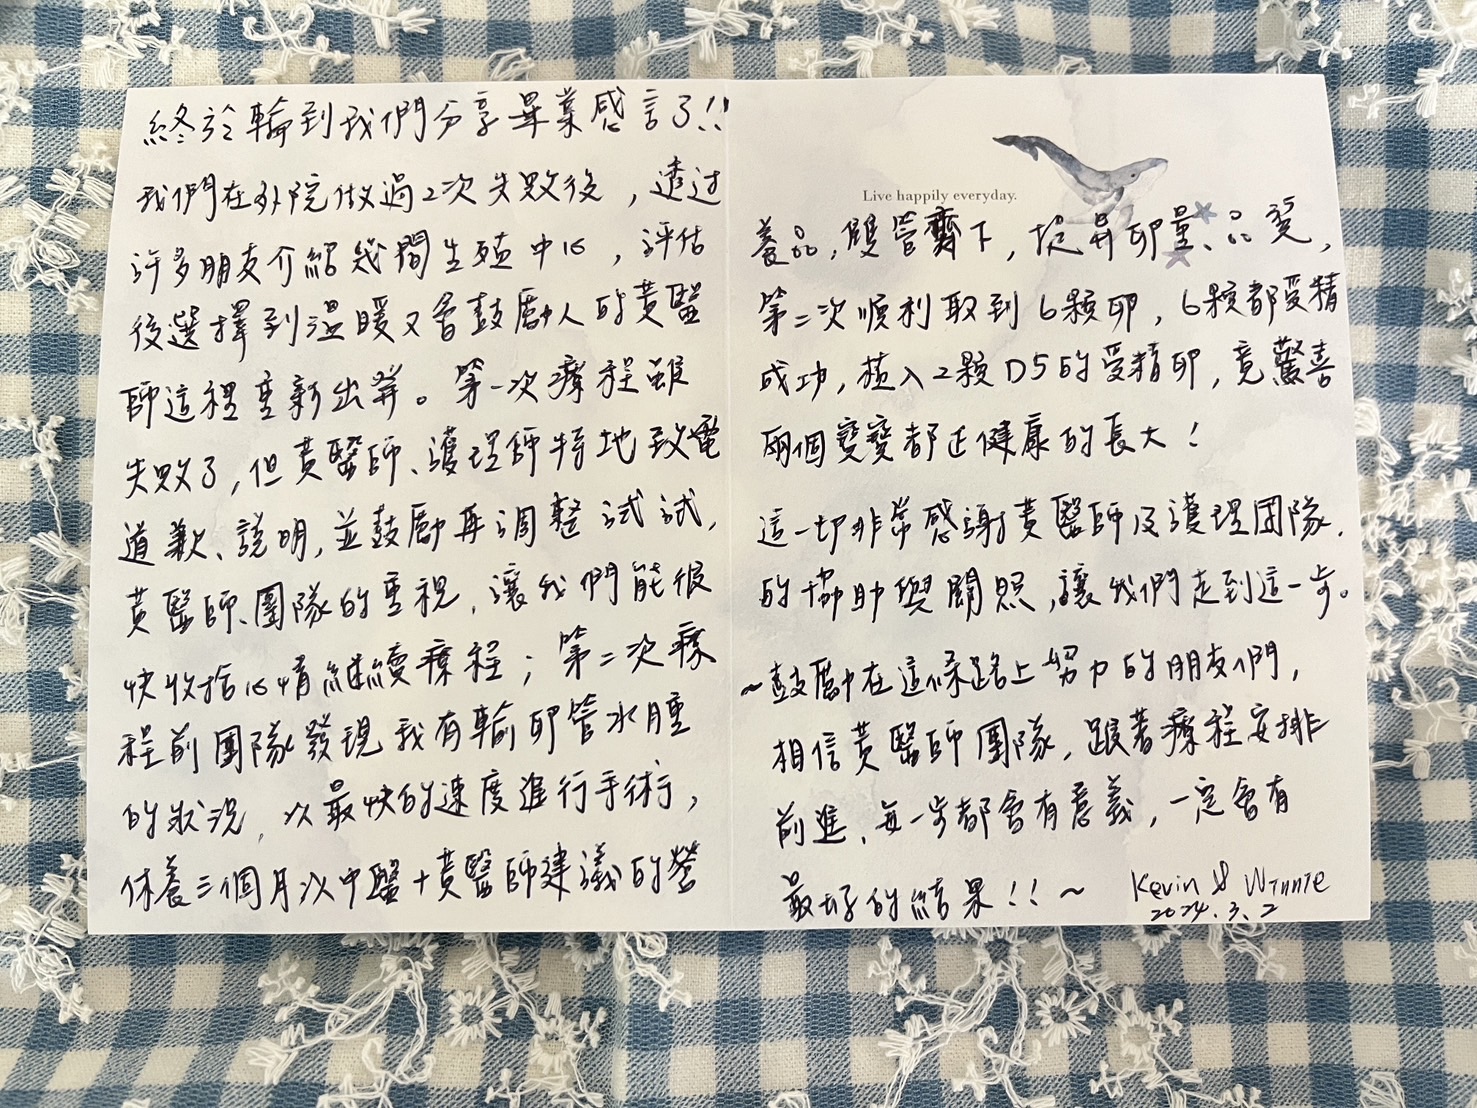 終於輪到我們分享畢業感言了!!
我們在外院做過2次失敗後，透過
許多朋友介紹幾間生殖中心，評估
後選擇到溫暖又會鼓勵人的黃醫
師這裡重新出發。第一次療程雖
失敗了，但黃醫師、護理師特地致電
道歉、說明，並鼓勵再調整試試，
黃醫師、團隊的重視，讓我們能很
快收拾心情繼續療程；第二次療
程前團隊發現我有輸卵管水腫
的狀況，以最快的速度進行手術，
休養三個月以中醫+黃醫師建議的營
Live happily everyday.
養品，雙管齊下，提昇卵量、品質，
第二次順利取到6顆卵，6顆都受精
成功，植入2顆D5的受精卵，竟驚喜
兩個寶寶都正健康的長大！
這一切非常感謝黃醫師及護理團隊，
的協助與關照，讓我們走到這一步。
~鼓勵在這條路上努力的朋友們，
相信黃醫師團隊，跟著療程安排
前進，每一步都會有意義，一定會有
最好的結果!!~ Kevin & Winnie
2024.3.2